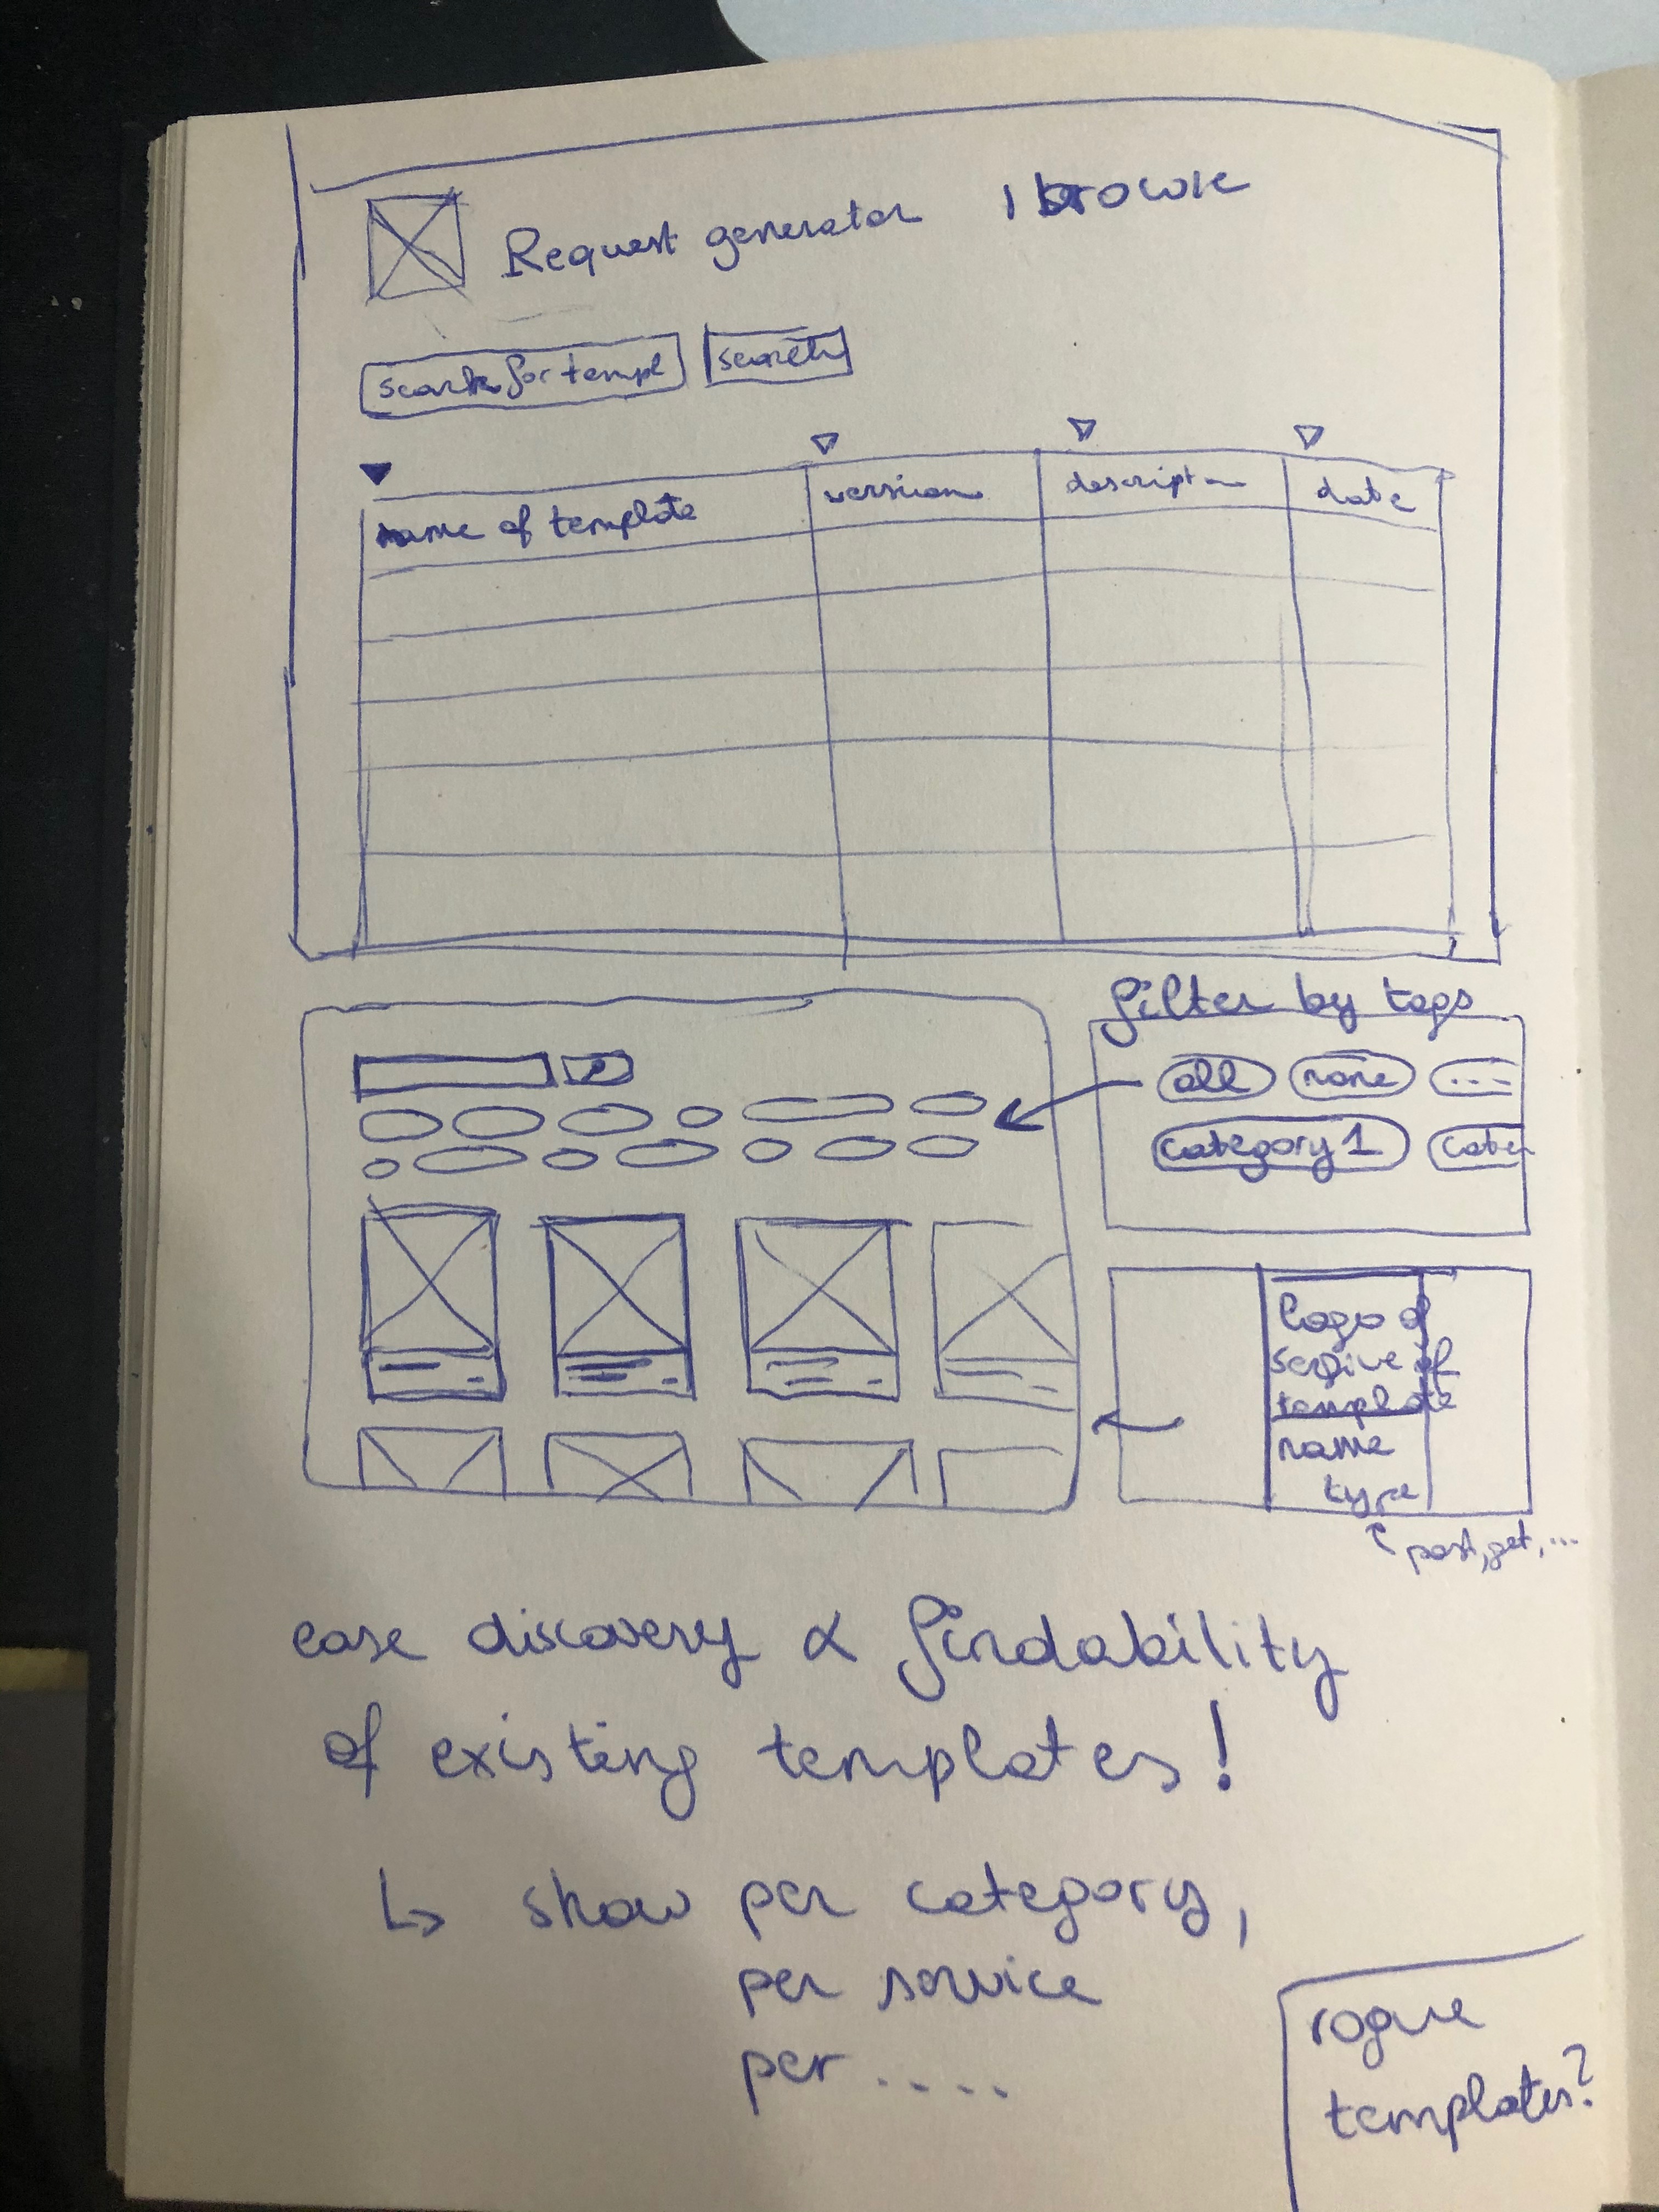 Request generator | browse
search for templ search
name of template version descript date
filter by tags
all none ...
category 1 cate
logo of
service of
template
name
type
post, get, ...
ease discovery & findability
of existing templates!
↳ show per category,
per service
per ....
rogue
templates?